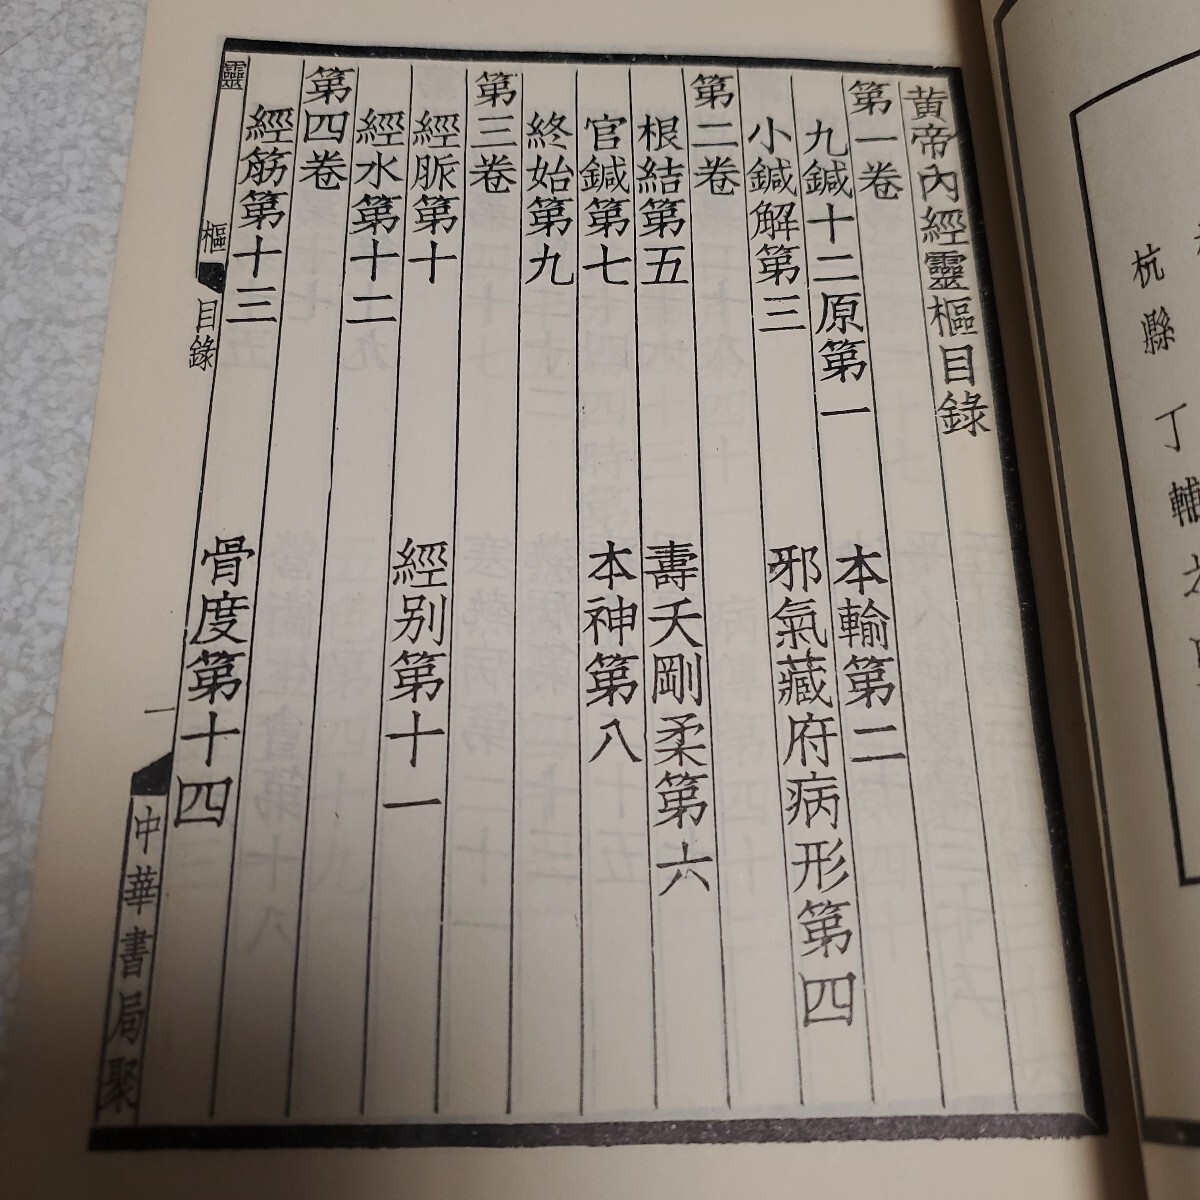 黃帝內經靈樞目錄
第一卷
九鍼十二原第一　本輸第二
小鍼解第三　邪氣藏府病形第四
第二卷
根結第五　壽夭剛柔第六
官鍼第七　本神第八
終始第九
第三卷
經脈第十　經別第十一
經水第十二
第四卷
經筋第十三　骨度第十四
靈樞　目錄　一　中華書局聚
杭縣　丁輔